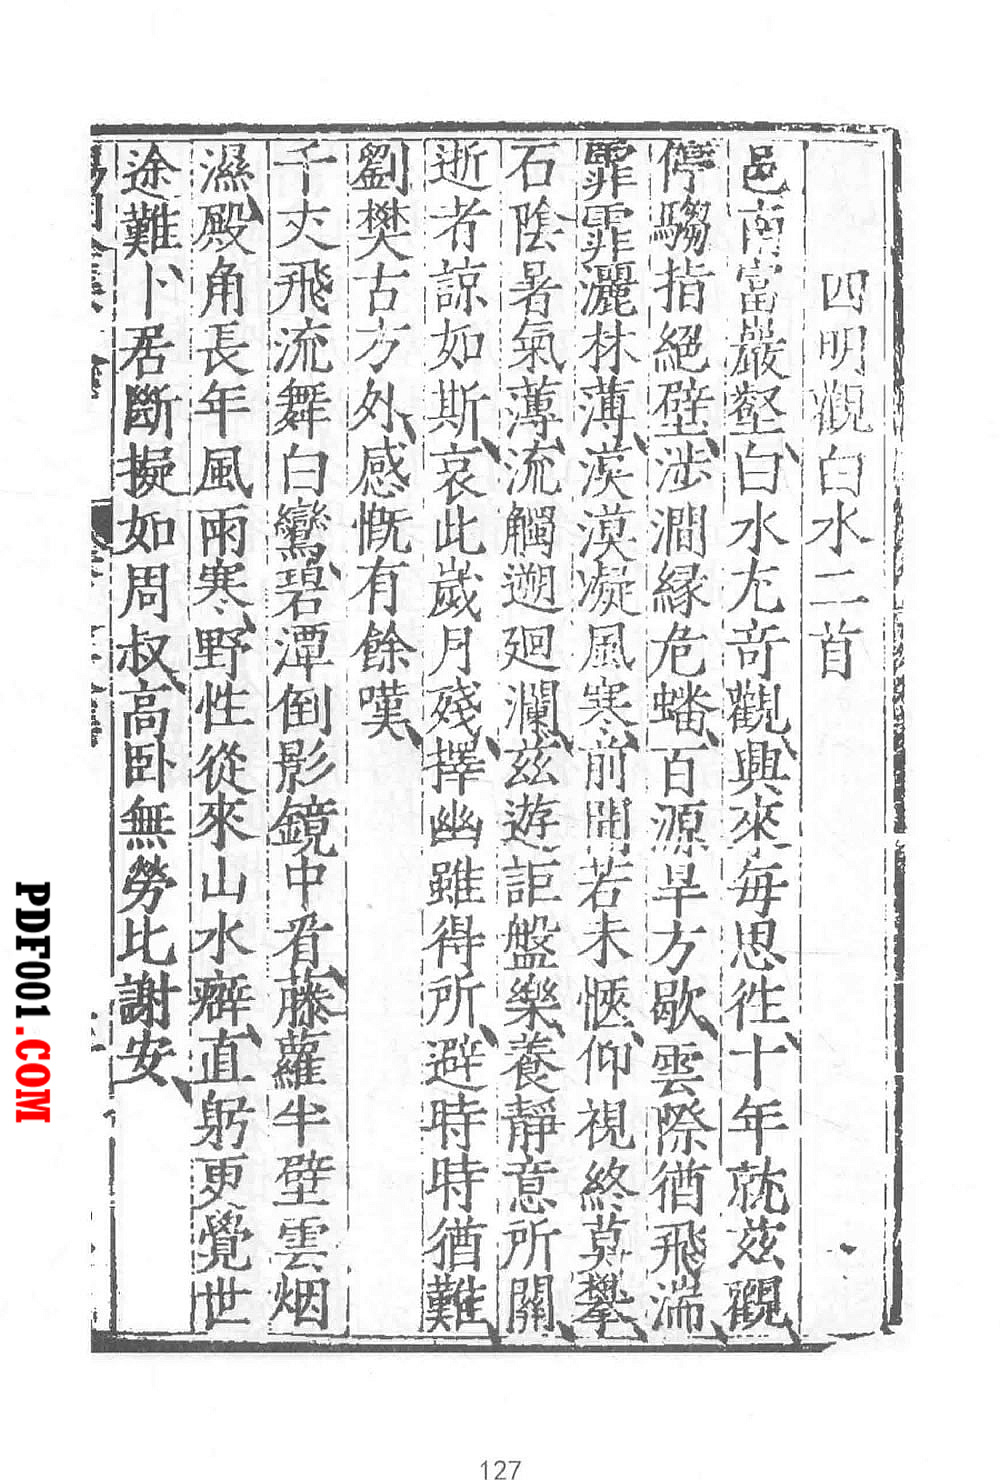 四明觀白水二首
邑南富巖壑白水尤竒觀興來每思徃十年就茲觀
停騶指絕壁涉澗緣危蟠百源旱方歇雲際猶飛湍
霏霏灑林薄漠漠凝風寒前聞若未愜仰視終莫攀
石陰暑氣薄流觸遡廻瀾茲遊詎盤樂養靜意所關
逝者諒如斯哀此歲月殘擇幽雖得所避時時猶難
劉樊古方外感慨有餘嘆
千丈飛流舞白鸞碧潭倒影鏡中看藤蘿半壁雲烟
濕殿角長年風雨寒野性從來山水癖直躬更覺世
途難卜居斷擬如周叔高卧無勞比謝安
PDF001.COM
127